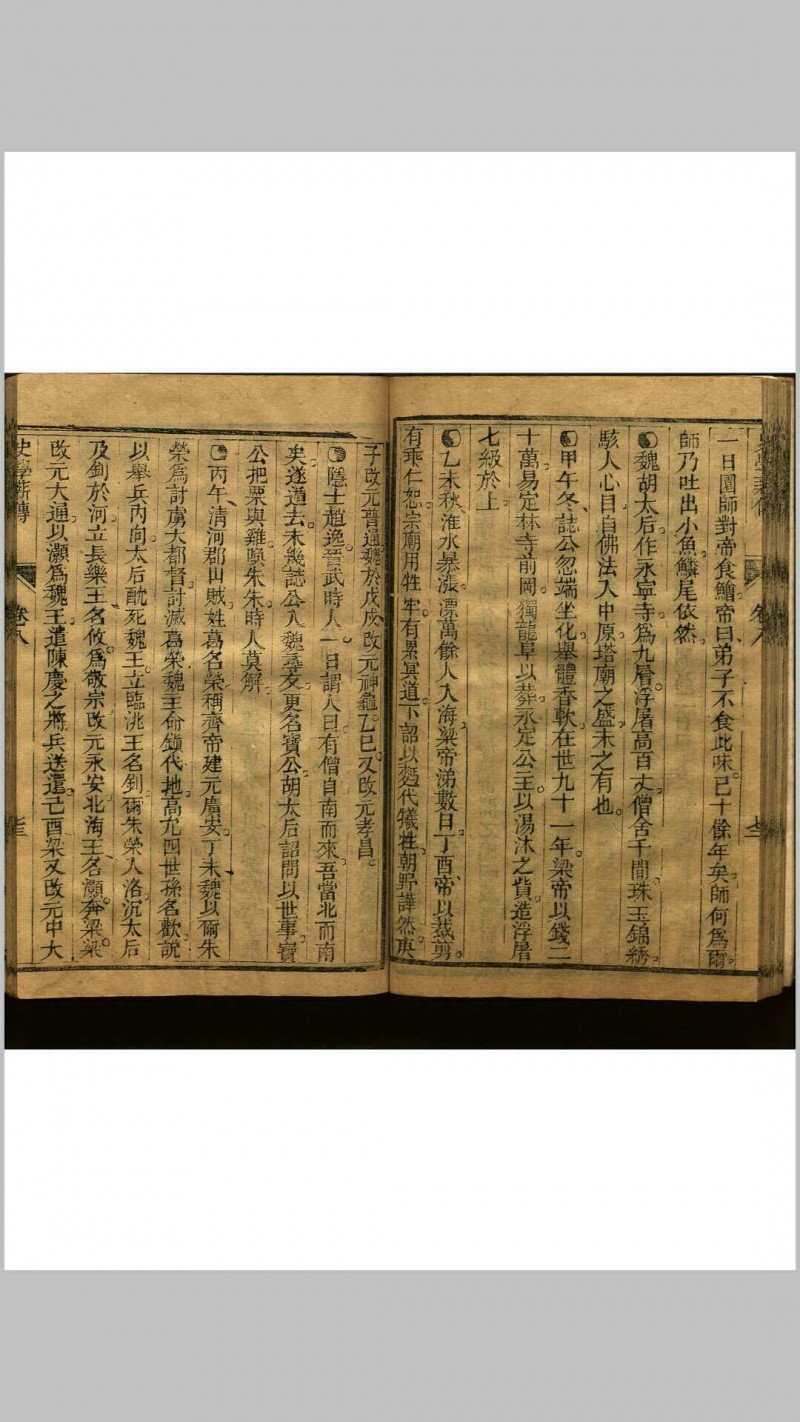 一日園師對帝食鱠帝曰弟子不食此味已十餘年矣師何爲爾
師乃吐出小魚鱗尾依然
魏胡太后作永寧寺爲九層浮屠高百丈僧舍千間珠玉錦綉
駭人心目自佛法入中原塔廟之盛未之有也
甲午冬誌公忽端坐化舉體香軟在世九十一年梁帝以錢二
十萬易定林寺前岡獨龍阜以葬永定公主以湯沐之貲造浮屠
七級於上
乙未秋淮水暴漲漂萬餘人入海梁帝涕數日丁酉帝以裁剪
有乖仁恕宗廟用牲牢有累冥道下詔以麪代犧牲朝野譁然庚
子改元普通魏於戊戌改元神龜乙巳又改元孝昌
隱士趙逸晉武時人一日謂人曰有僧自南而來吾當北而南
矣遂遁去未幾誌公入魏臺又更名寶公胡太后詔問以世事寶
公把粟與雞喚朱朱時人莫解
丙午清河郡山賊姓葛名榮稱齊帝建元廣安丁未魏以爾朱
榮爲討虜大都督討滅葛榮魏主命鎮代地高尤四世孫名歡説
以舉兵内向太后酖死魏主立臨洮王名釗爾朱榮入洛沉太后
及釗於河立長樂王名攸爲敬宗改元永安北海王名灝奔梁梁
改元大通以灝爲魏王遣陳慶之將兵送還己酉梁又改元中大
史學薪傳 卷八